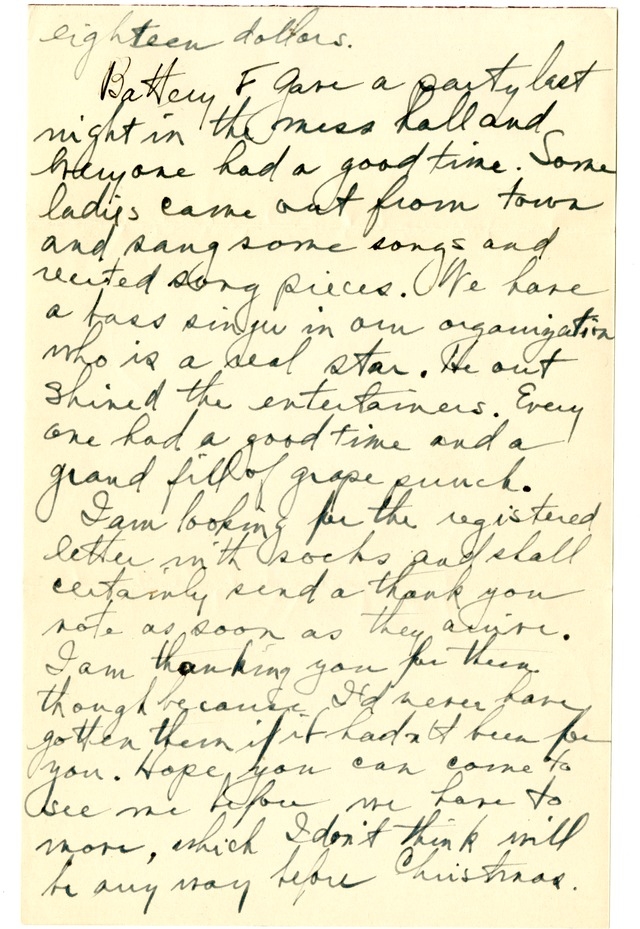 eighteen dollars.
Battery F gave a party last
night in the mess hall and
everyone had a good time. Some
ladies came out from town
and sang some songs and
recited song pieces. We have
a bass singer in our organization
who is a real star. He out
shined the entertainers. Every
one had a good time and a
grand fill of grape punch.
I am looking for the registered
letter with socks and shall
certainly send a thank you
note as soon as they arrive.
I am thanking you for them
though because I'd never have
gotten them if it hadn't been for
you. Hope you can come to
see me before we have to
move, which I don't think will
be any way before Christmas.